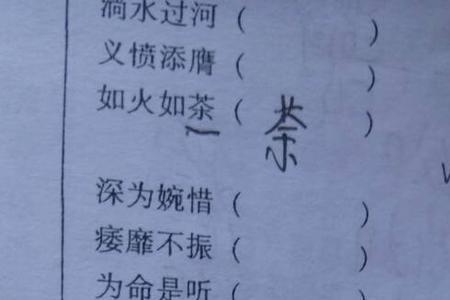 淌水过河（ ）
义愤添膺（ ）
如火如茶（ 荼 ）
深为婉惜（ ）
痿靡不振（ ）
为命是听（